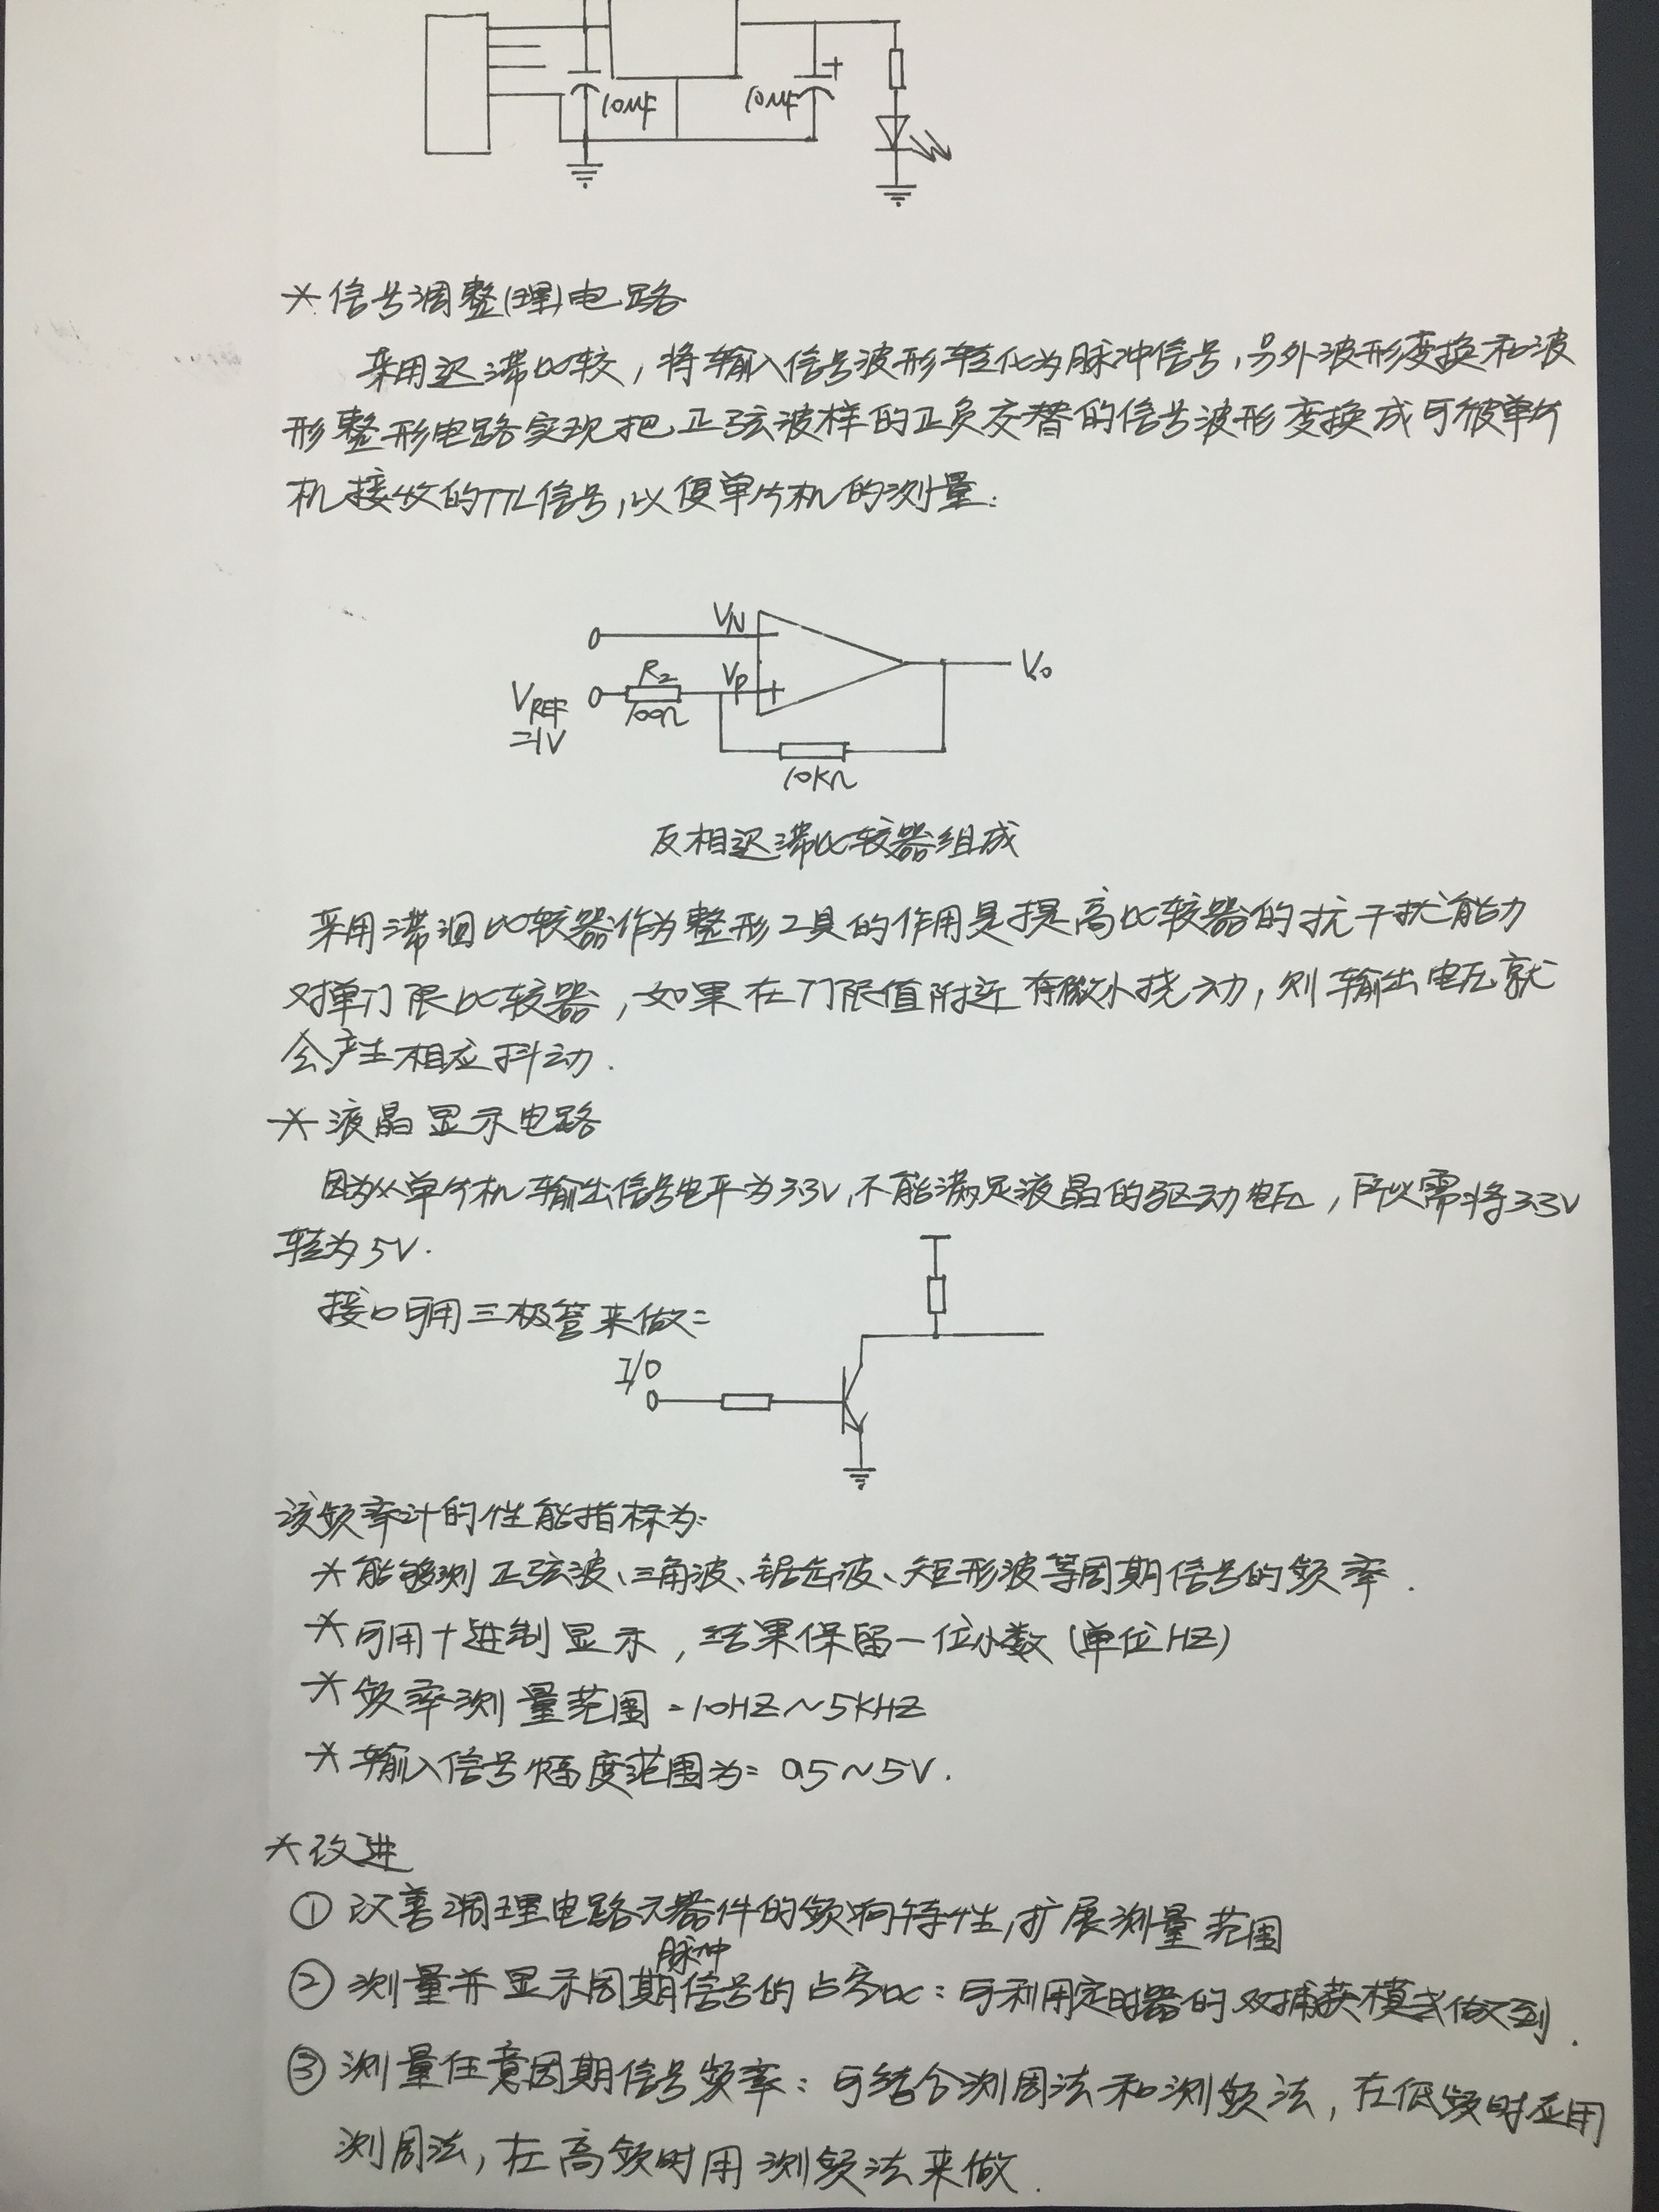 10μF 10μF +
*信号调整(理)电路
采用迟滞比较,将输入信号波形转化为脉冲信号,另外波形变换和波
形整形电路实现把正弦波样的正负交替的信号波形变换成可被单片
机接收的TTL信号,以便单片机的测量.
VN
VP
R2
100Ω
VREF
=1V
Vo
10KΩ
反相迟滞比较器组成
采用滞洄比较器作为整形工具的作用是提高比较器的抗干扰能力
对单门限比较器,如果在门限值附近有微小挠动,则输出电压就
会产生相应抖动.
*液晶显示电路
因为从单片机输出信号电平为3.3V,不能满足液晶的驱动电压,所以需将3.3V
转为5V.
接口可用三极管来做:
I/O
该频率计的性能指标为:
*能够测正弦波、三角波、锯齿波、矩形波等周期信号的频率.
*可用十进制显示,结果保留一位小数(单位HZ)
*频率测量范围:10HZ~5KHZ
*输入信号幅度范围为:0.5~5V.
*改进
①改善调理电路元器件的频响特性,扩展测量范围
②测量并显示周期脉冲信号的占空比:可利用定时器的双捕获模式做到.
③测量任意周期信号频率:可结合测周法和测频法,在低频时应用
测周法,在高频时用测频法来做.